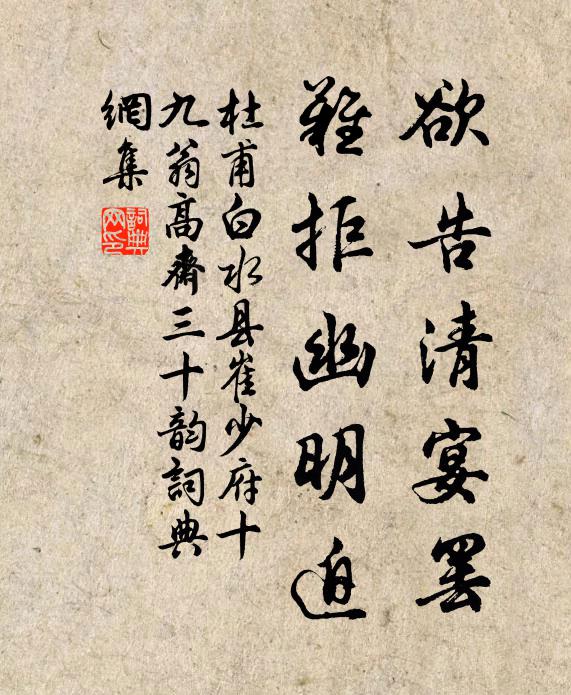 欲告清宴罢
難拒幽明迫
杜甫白水县崔少府十
九翁高齋三十韵詞典
網集
詞典网印